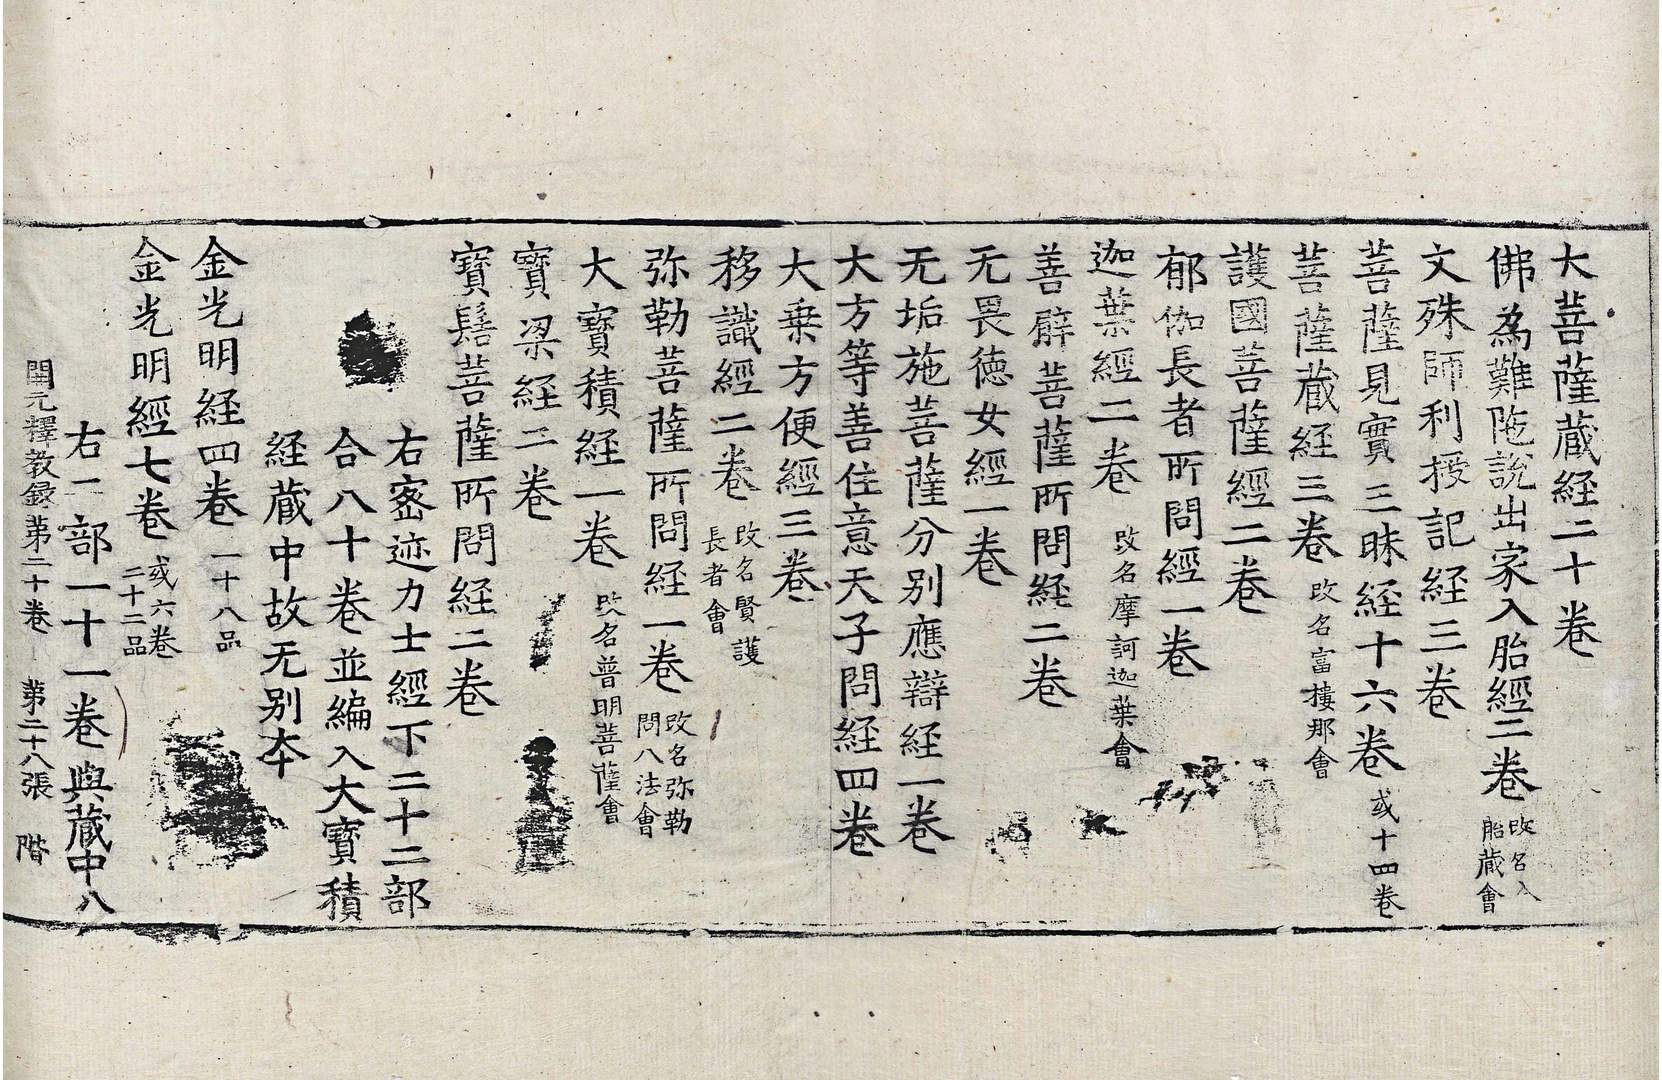 大菩薩蔵経二十卷
佛為難陁說出家入胎經二卷 攺名入胎藏會
文殊師利授記経三卷
菩薩見實三昧経十六卷 或十四卷
菩薩蔵経三卷 攺名富樓那會
護國菩薩經二卷
郁伽長者所問經一卷
迦葉經二卷 攺名摩訶迦葉會
善臂菩薩所問経二卷
无畏德女經一卷
无垢施菩薩分别應辯経一卷
大方等善住意天子問経四卷
大乗方便經三卷
移識經二卷 攺名賢護長者會
弥勒菩薩所問経一卷 攺名弥勒問八法會
大寶積経一卷 攺名普明菩薩會
寶梁経二卷
寶髻菩薩所問経二卷
右宻迹力士經下二十二部
合八十卷並編入大寶積
経蔵中故无别夲
金光明経四卷 一十八品
金光明經七卷 或六卷二十二品
右二部一十一卷與蔵中八
開元釋教録苐二十卷 苐二十八張 階